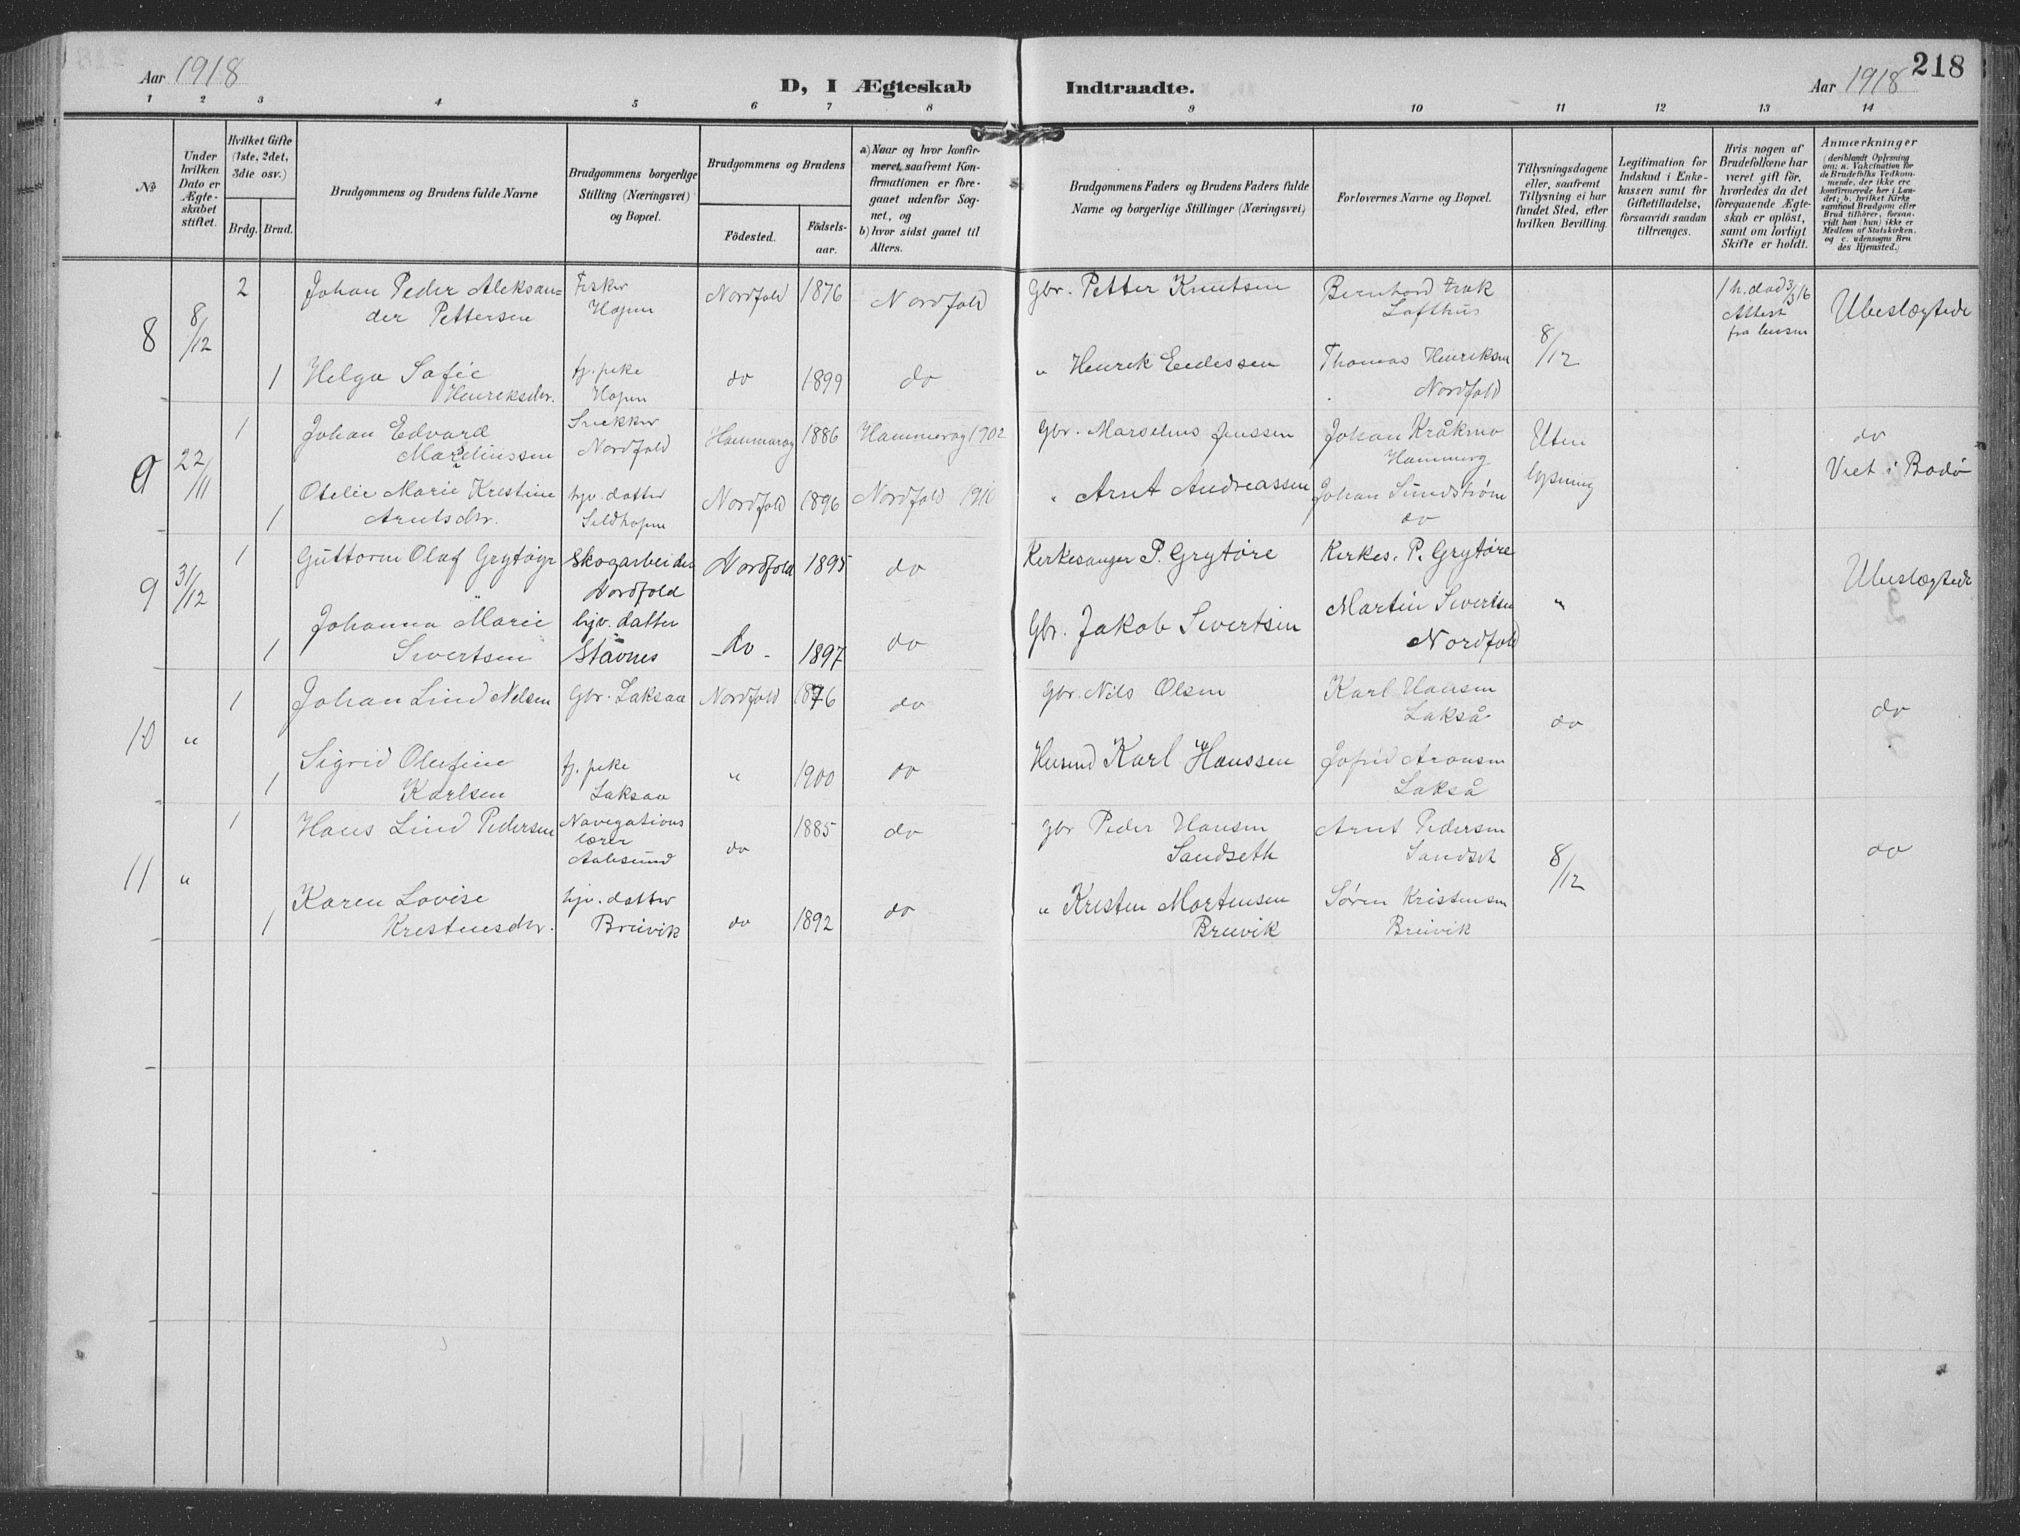 Aar 1918
D, I Ægteskab Indtraadte.
Aar 1918
218
1 2 3 4 5 6 7 8 9 10 11 12 13 14
No
Under hvilken Dato er Ægteskabet stiftet.
Hvilket Gifte (1ste, 2det, 3die osv.)
Brdg. Brud.
Brudgommens og Brudens fulde Navne
Brudgommens borgerlige Stilling (Næringsvei) og Bopæl.
Brudgommens og Brudens
Födested.
Födselsaar.
a) Naar og hvor konfirmeret, saafremt Konfirmationen er foregaaet udenfor Sognet, og
b) hvor sidst gaaet til Alters.
Brudgommens Faders og Brudens Faders fulde Navne og borgerlige Stillinger (Næringsvei)
Forlovernes Navne og Bopæl.
Tillysningsdagene eller, saafremt Tillysning ei har fundet Sted, efter hvilken Bevilling.
Legitimation for Indskud i Enkekassen samt for Giftetilladelse, forsaavidt saadan tiltrænges.
Hvis nogen af Brudefolkene har været gift för, hvorledes da det foregaaende Ægteskab er oplöst, samt om lovligt Skifte er holdt.
Anmærkninger
(deriblandt Oplysning om: a. Vakcination for de Brudefolks Vedkommende, der ikke ere konfirmerede her i Landet; b. hvilket Kirkesamfund Brudgom eller Brud tilhörer, forsaavidt han (hun) ikke er Medlem af Statskirken, og c. udensogns Brudes Hjemsted.)
8 8/12 2 Johan Peder Aleksander Pettersen Fisker Hopen Nordfold 1876 Nordfold Gbr. Petter Knutsen Bernhard Lofthus 8/12 1 h. død 3/3 16 Attest fra lensm Ubeslægtede
1 Helga Sofie Henriksdtr. tj. pike Hopen do 1899 do " Henrik Thomas Henriksen Nordfold
9 22/11 1 Johan Edvard Marselinssen Snekker Nordfold Hammerøy 1886 Hammerøy 1902 Gbr. Marselius Jenssen Johan Kråkmo Hammerøy Uten lysning do Viet i Bodø
1 Otelie Marie Kristine Arntsdtr. hjv. datter Seldhopen Nordfold 1896 Nordfold 1910 " Arnt Andreassen Johan Sundstrøm do
9 31/12 1 Guttorm Olaf Grytøyr Skogarbeider Nordfold Nordfold 1895 do Kirkesanger P. Grytøre Kirkes. P. Grytøre " Ubeslægtede
1 Johanna Marie Sivertsen hjv. datter Stavnes do 1897 do Gbr. Jakob Sivertsen Martin Sivertsen Nordfold
10 " 1 Johan Lind Nilsen Gbr. Laksaa Nordfold 1876 do Gbr. Nils Olsen Karl Hansen Lakså do do
1 Sigrid Olufine Karlsen tj. pike Laksaa " 1900 do Husmd Karl Hanssen Jofrid Aronsen Lakså
11 " 1 Hans Lind Pedersen Navigations lærer Aalesund do 1885 do Gbr Peder Hansen Sandseth Arnt Pedersen Sandset 8/12 do
1 Karen Lovise Kristensdtr. hjv. datter Breivik do 1892 do " Kristen Mortensen Breivik Søren Kristensen Breivik